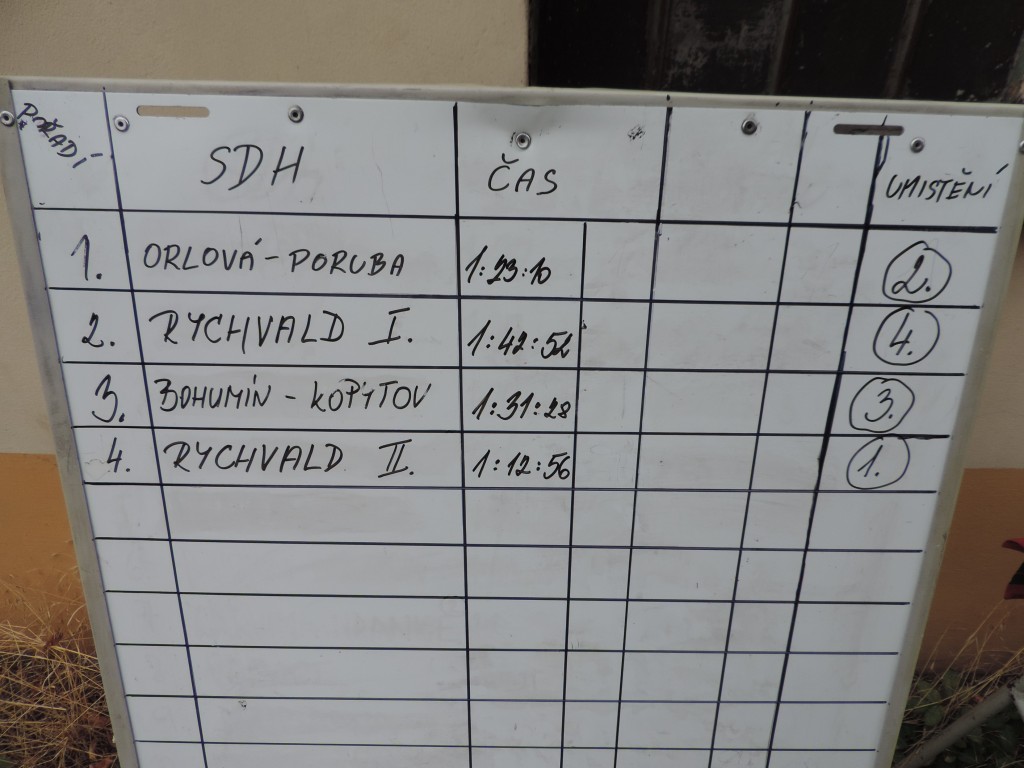 POŘADÍ SDH ČAS UMISTĚNÍ
1. ORLOVÁ - PORUBA 1:23:10 2.
2. RYCHVALD I. 1:42:52 4.
3. BOHUMÍN - KOPYTOV 1:31:28 3.
4. RYCHVALD II. 1:12:56 1.